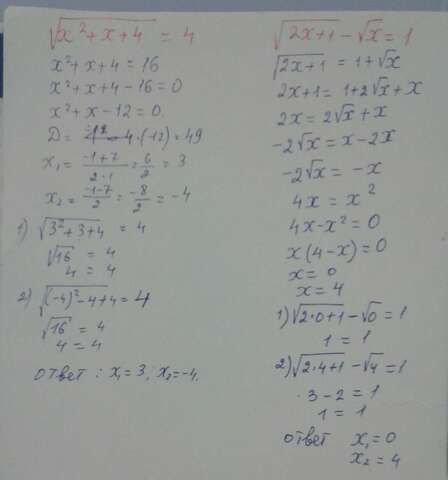 √(x² + x + 4) = 4
x² + x + 4 = 16
x² + x + 4 - 16 = 0
x² + x - 12 = 0.
x₁ = (-1 + 7)/(2·1) = 6/2 = 3
x₂ = (-1-7)/2 = -8/2 = -4
1) √(3² + 3 + 4) = 4
√16 = 4
4 = 4
2) √((-4)² - 4 + 4) = 4
√16 = 4
4 = 4
ответ : x₁ = 3, x₂ = -4.
√(2x+1) - √x = 1
√(2x+1) = 1 + √x
2x+1 = 1 + 2√x + x
2x = 2√x + x
-2√x = x - 2x
-2√x = -x
4x = x²
4x - x² = 0
x(4-x) = 0
x = 0
x = 4
1) √(2·0+1) - √0 = 1
1 = 1
2) √(2·4+1) - √4 = 1
3 - 2 = 1
1 = 1
ответ x₁ = 0
x₂ = 4